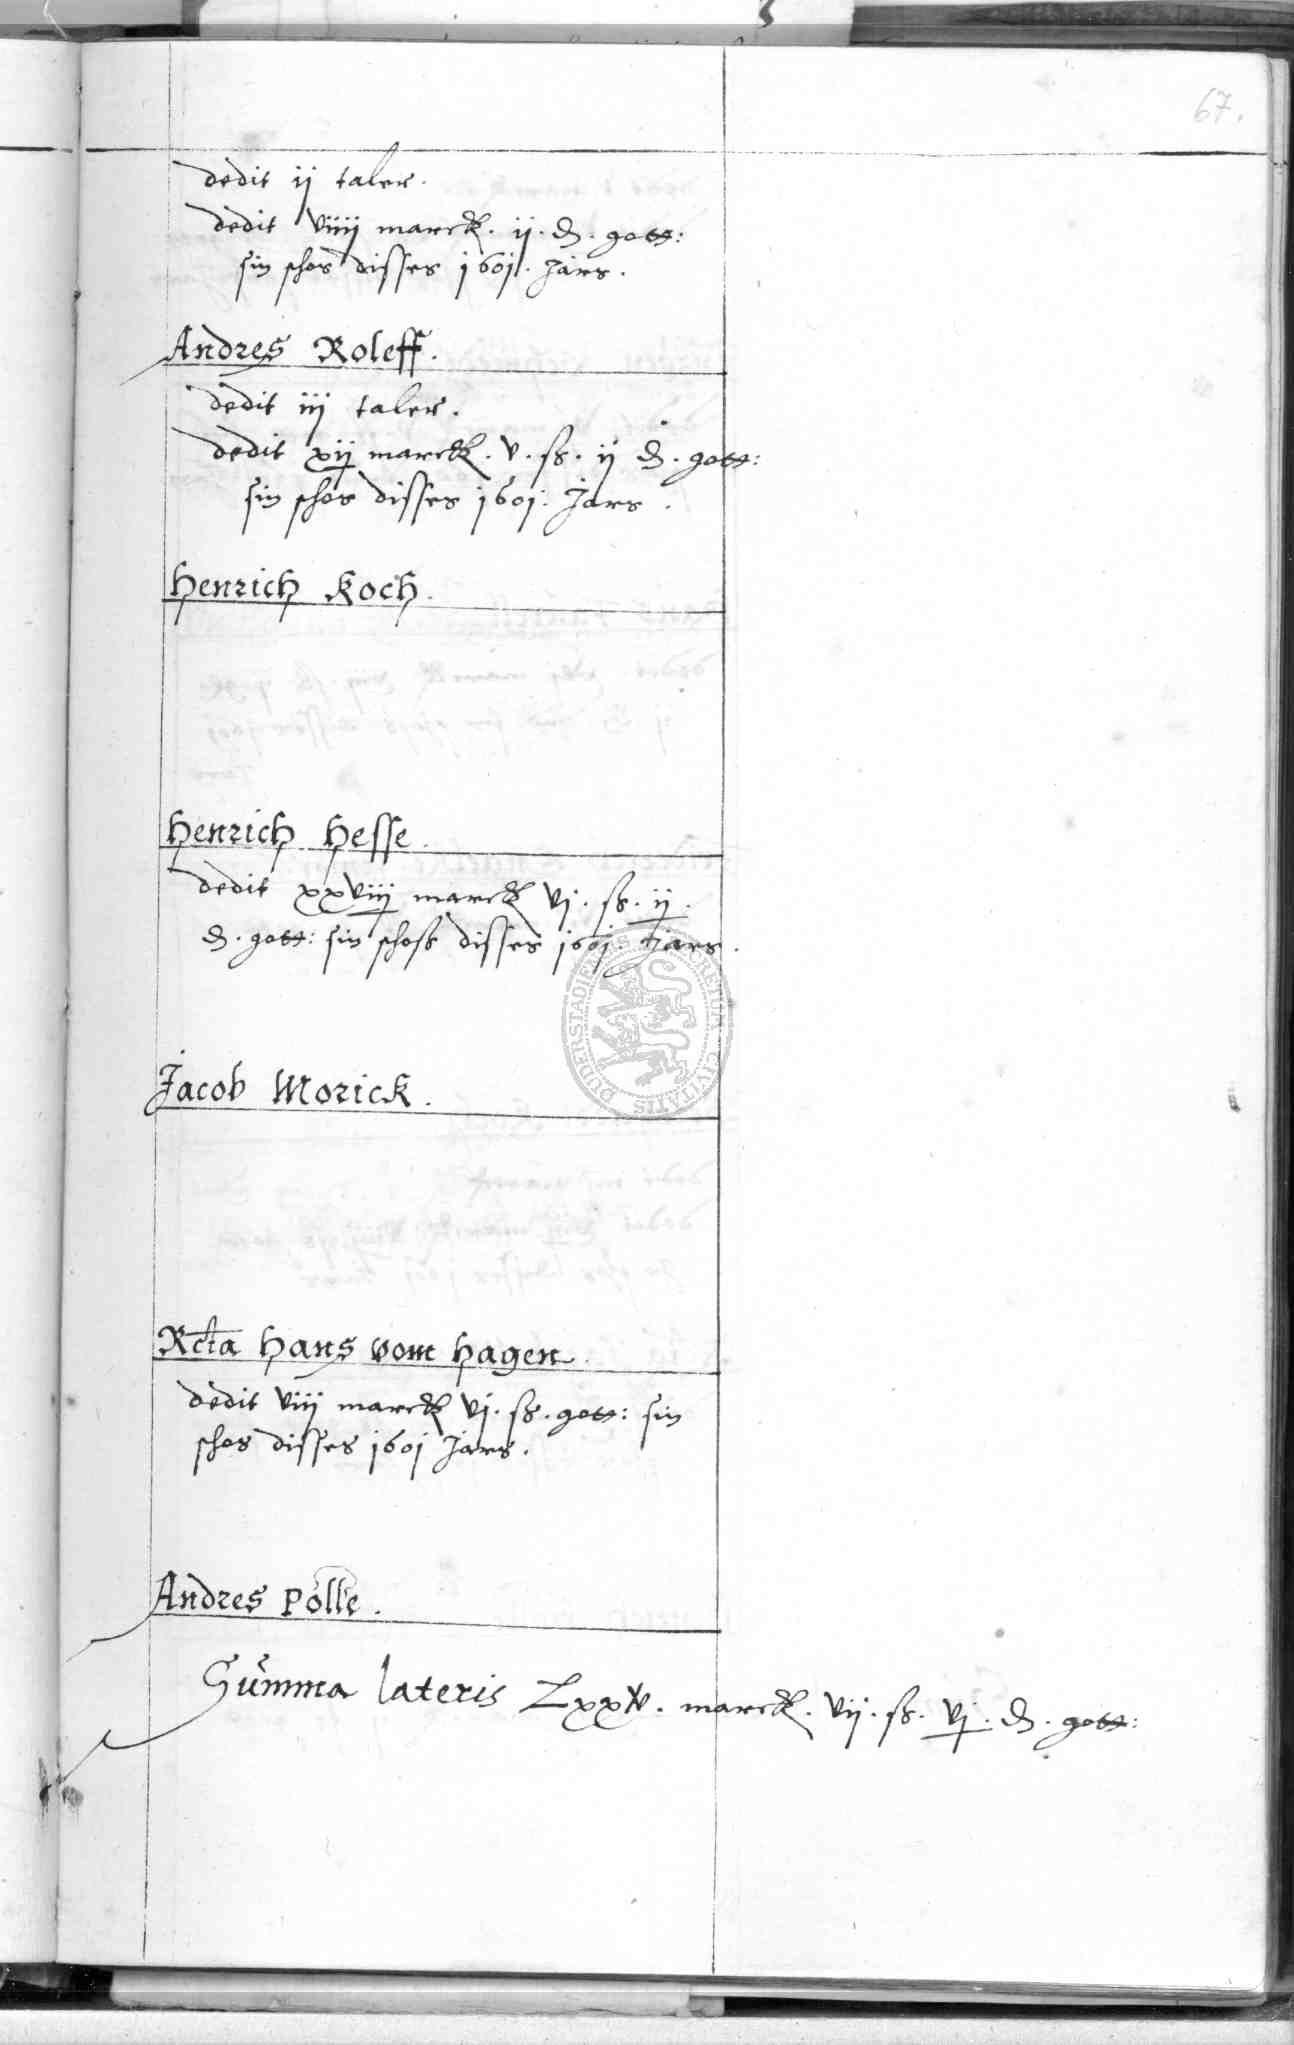 67.
dedit ij taler.
dedit viiij marck. ij. d. gott:
sin schos disses 1601. Jars.
Andres Roleff.
dedit iij taler.
dedit xij marck. v. ß. ij d. gott:
sin schos disses 1601: Jars.
Henrich Koch.
Henrich Hesse.
dedit xxviij marck vj. ß. ij.
d. gott: sin schoß disses 1601. Jars.
Jacob Morick.
Rcta Hans vom Hagen.
dedit viij marck vj. ß. gott: sin
schos disses 1601 Jars.
Andres Polle.
Summa lateris Lxxv. marck. vij. ß. vj. d. gott:
SECRETUM CIVITATIS DUDERSTADIENSIS